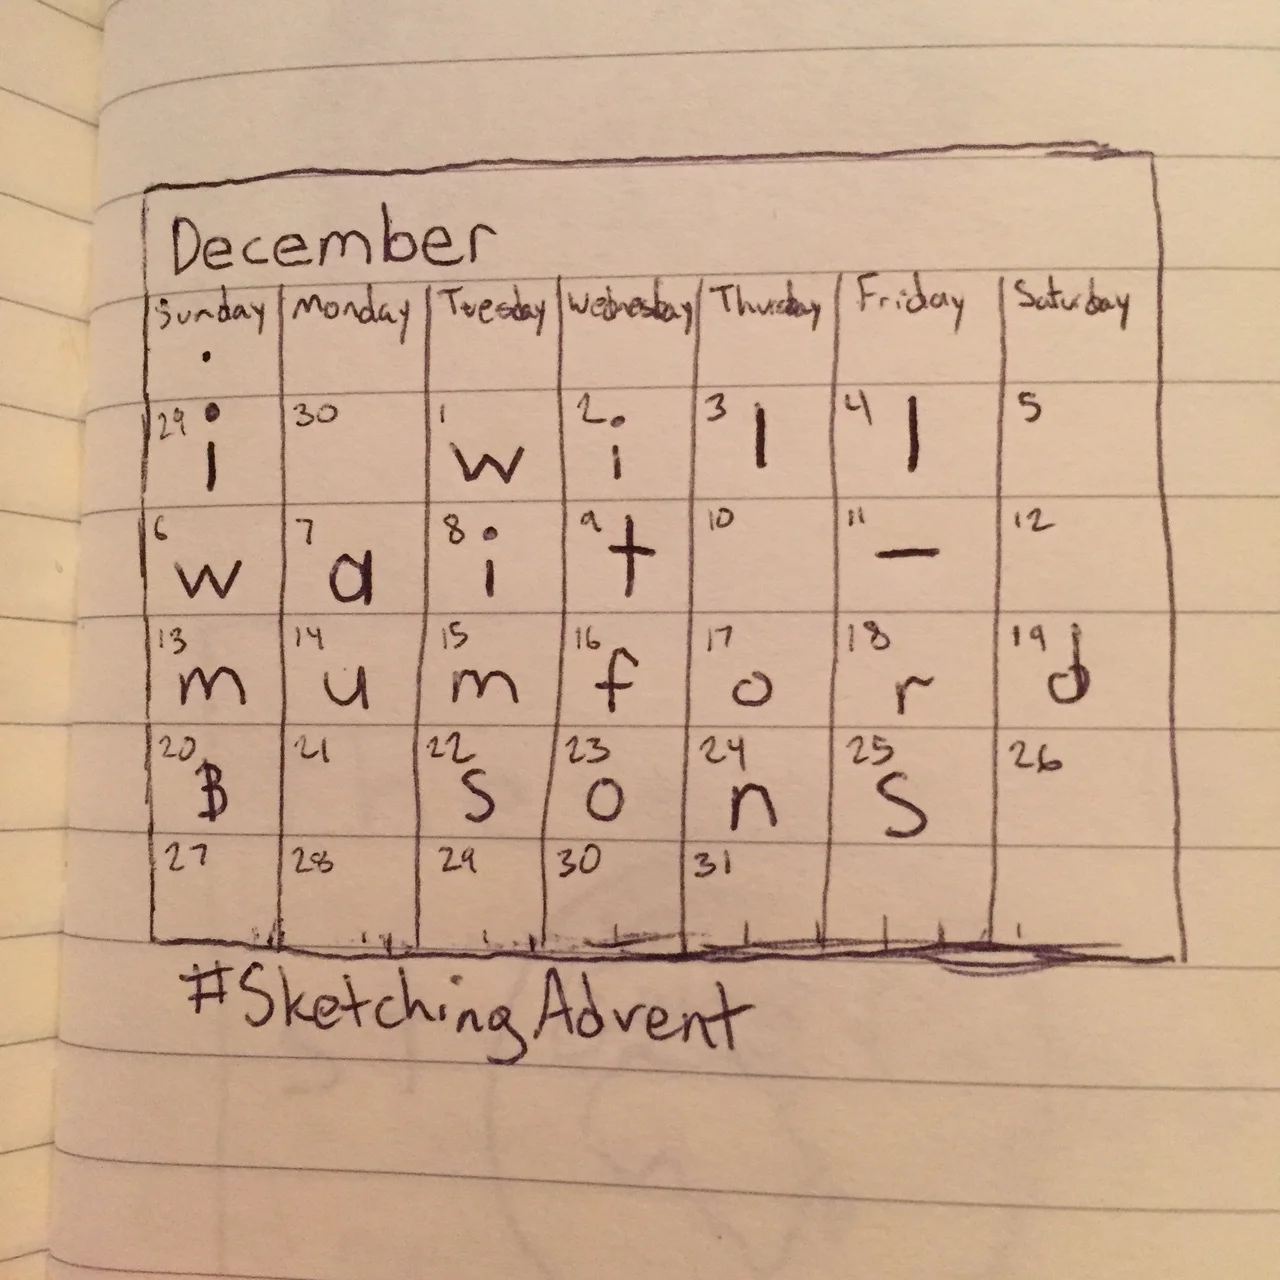 December
Sunday Monday Tuesday Wednesday Thursday Friday Saturday
29 i 30 1 w 2 i 3 l 4 l 5
6 w 7 a 8 i 9 t 10 11 – 12
13 m 14 u 15 m 16 f 17 o 18 r 19 d
20 & 21 22 s 23 o 24 n 25 s 26
27 28 29 30 31
#SketchingAdvent